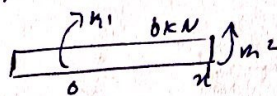 M1 6KN
M2
0 x